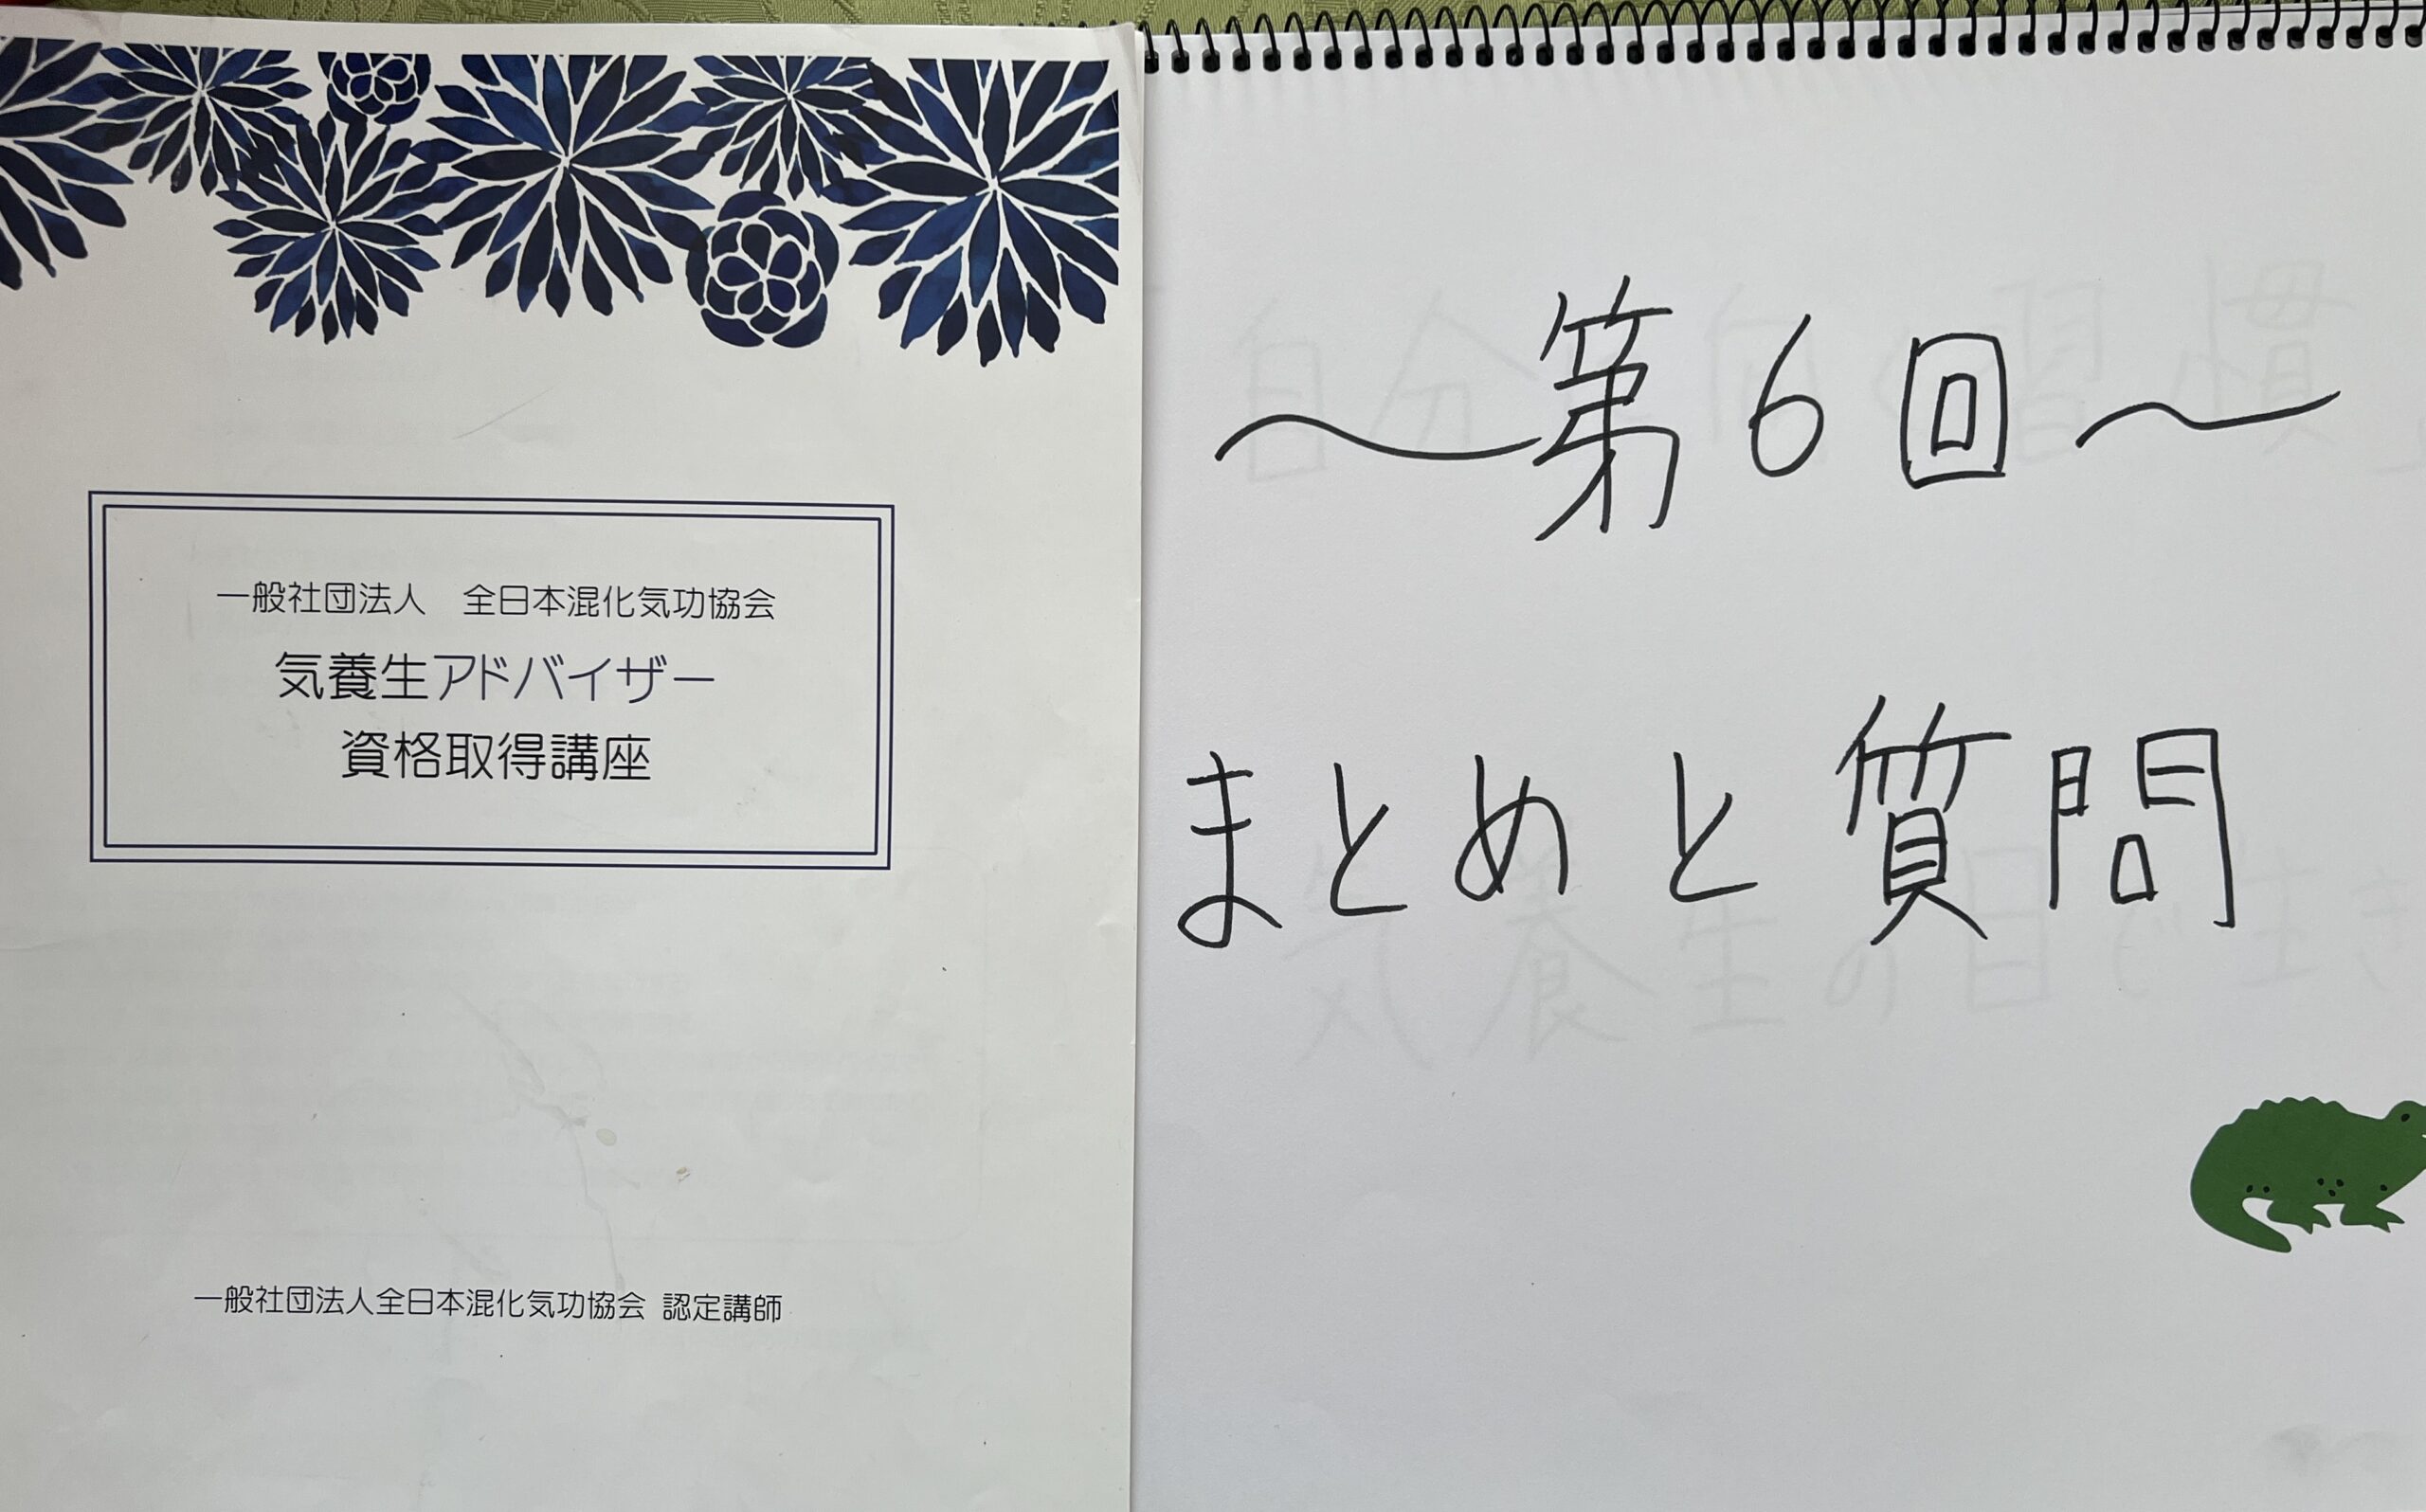 一般社団法人　全日本混化気功協会
気養生アドバイザー
資格取得講座
一般社団法人全日本混化気功協会 認定講師
〜第6回〜
まとめと質問